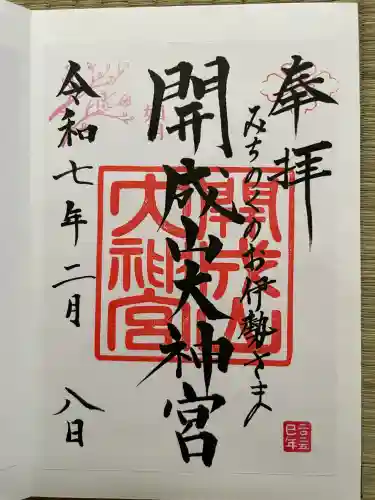 奉拝
みちのくのお伊勢さま
開成山大神宮
令和七年二月八日
開成山
大神宮
如月
二〇二五
巳年